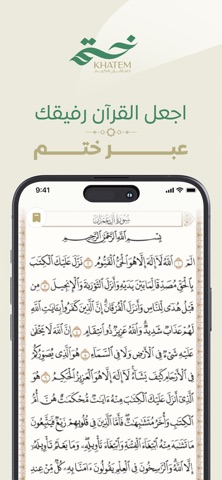 ختم
KHATEM
اجعل القرآن رفيقك
عبر ختم
9:41
سورة آل عمران
بسم الله الرحمن الرحيم
الم الله لا إله إلا هو الحي القيوم نزل عليك الكتب
بالحق مصدقا لما بين يديه وأنزل التورىة والإنجيل
من قبل هدى للناس وأنزل الفرقان إن الذين كفروا بءايت الله
لهم عذاب شديد والله عزيز ذو انتقام إن الله لا يخفى
عليه شيء في الأرض ولا في السماء هو الذي يصوركم
في الأرحام كيف يشاء لا إله إلا هو العزيز الحكيم
هو الذي أنزل عليك الكتب منه ءايت محكمت هن أم
الكتب وأخر متشبهت فأما الذين في قلوبهم زيغ فيتبعون
ما تشبه منه ابتغاء الفتنة وابتغاء تأويله وما يعلم تأويله
إلا الله والرسخون في العلم يقولون ءامنا به كل من عند